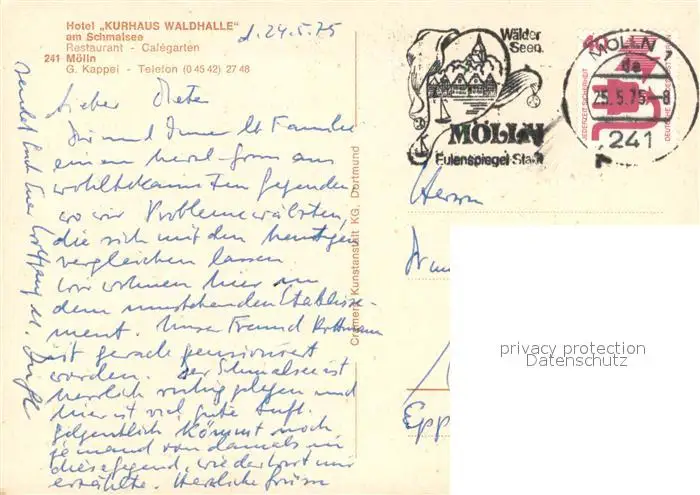 Hotel „KURHAUS WALDHALLE"
am Schmalsee
Restaurant - Cafégarten
241 Mölln
G. Kappei - Telefon (0 45 42) 27 48
d. 24.5.75
Lieber Dieter
Dir und Deiner lb. Familie
einen herzl. aus
wohlbekannten Gegenden,
wo wir Probleme wälzten,
die sich mit den heutigen
vergleichen lassen
Wir wohnen hier in
dem umstehenden Etablisse-
ment. Unser Freund
ist gerade pensioniert
worden. Der Schmalsee ist
herrlich ruhig gelegen und
hier ist viel gute Luft.
Gelegentlich kommt noch
jemand von damals in
diese Gegend, wie der Wirt mir
erzählte. Herzliche Grüsse
sendet Euch Euer Wolfgang u.
Cramers Kunstanstalt KG. Dortmund
Wälder
Seen
MÖLLN
Eulenspiegel-Stadt
MÖLLN
da
25.5.75-8
241
JEDERZEIT SICHERHEIT
DEUTSCHE BUNDESPOST
Herrn
privacy protection
Datenschutz